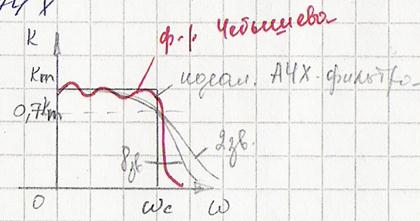 АЧХ
K
ф.р. Чебышева
Km
идеал. АЧХ фильтра
0,7Km
2зв.
8зв
0
ωc
ω